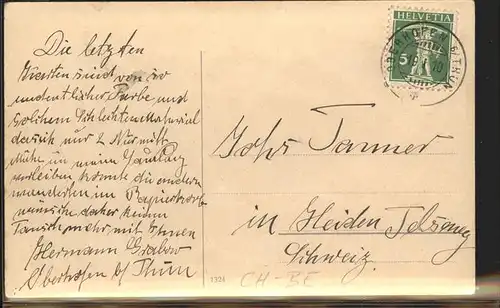 Die letzten
Karten sind von so
undeutlicher Farbe und
solchem Schlechtem Material
dass ich nur 2 Nur mit
Mühe in meine Samlung
einreihen konnte die andern
wanderten im Papierkorb
wünsche daher keinen
Tausch mehr mit Ihnen
Hermann Grabow
Oberhofen b/Thun
HELVETIA
5
OBERHOFEN b/THUN
Johs Tanner
in Heiden
Schweiz
1326
CH-BE